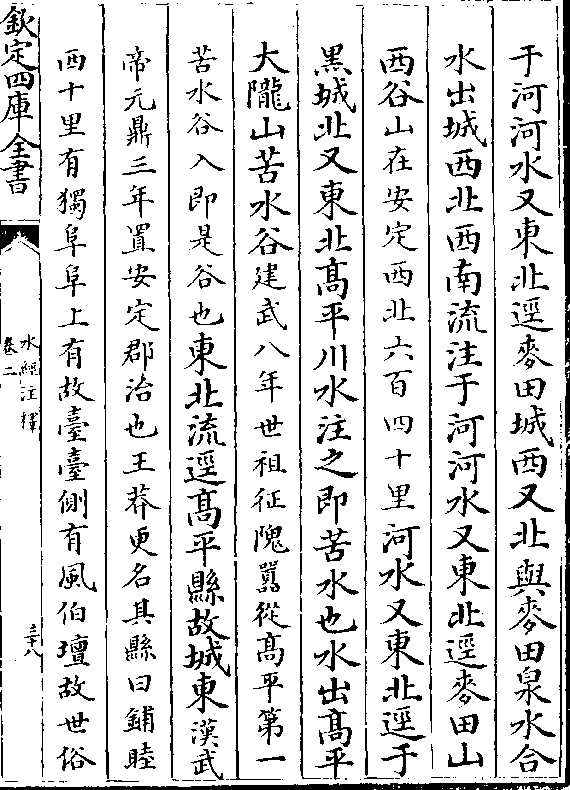 于河河水又東北逕麥田城西又北與麥田泉水合
水出城西北西南流注于河河水又東北逕麥田山
西谷山在安定西北六百四十里河水又東北逕于
黒城北又東北髙平川水注之即苦水也水出髙平
大隴山苦水谷建武八年世祖征隗囂從髙平第一
苦水谷入即是谷也東北流逕髙平縣故城東漢武
帝元鼎三年置安定郡治也王莽更名其縣曰鋪睦
西十里有獨阜阜上有故臺臺側有風伯壇故世俗
欽定四庫全書
水經注釋
卷二
三十八